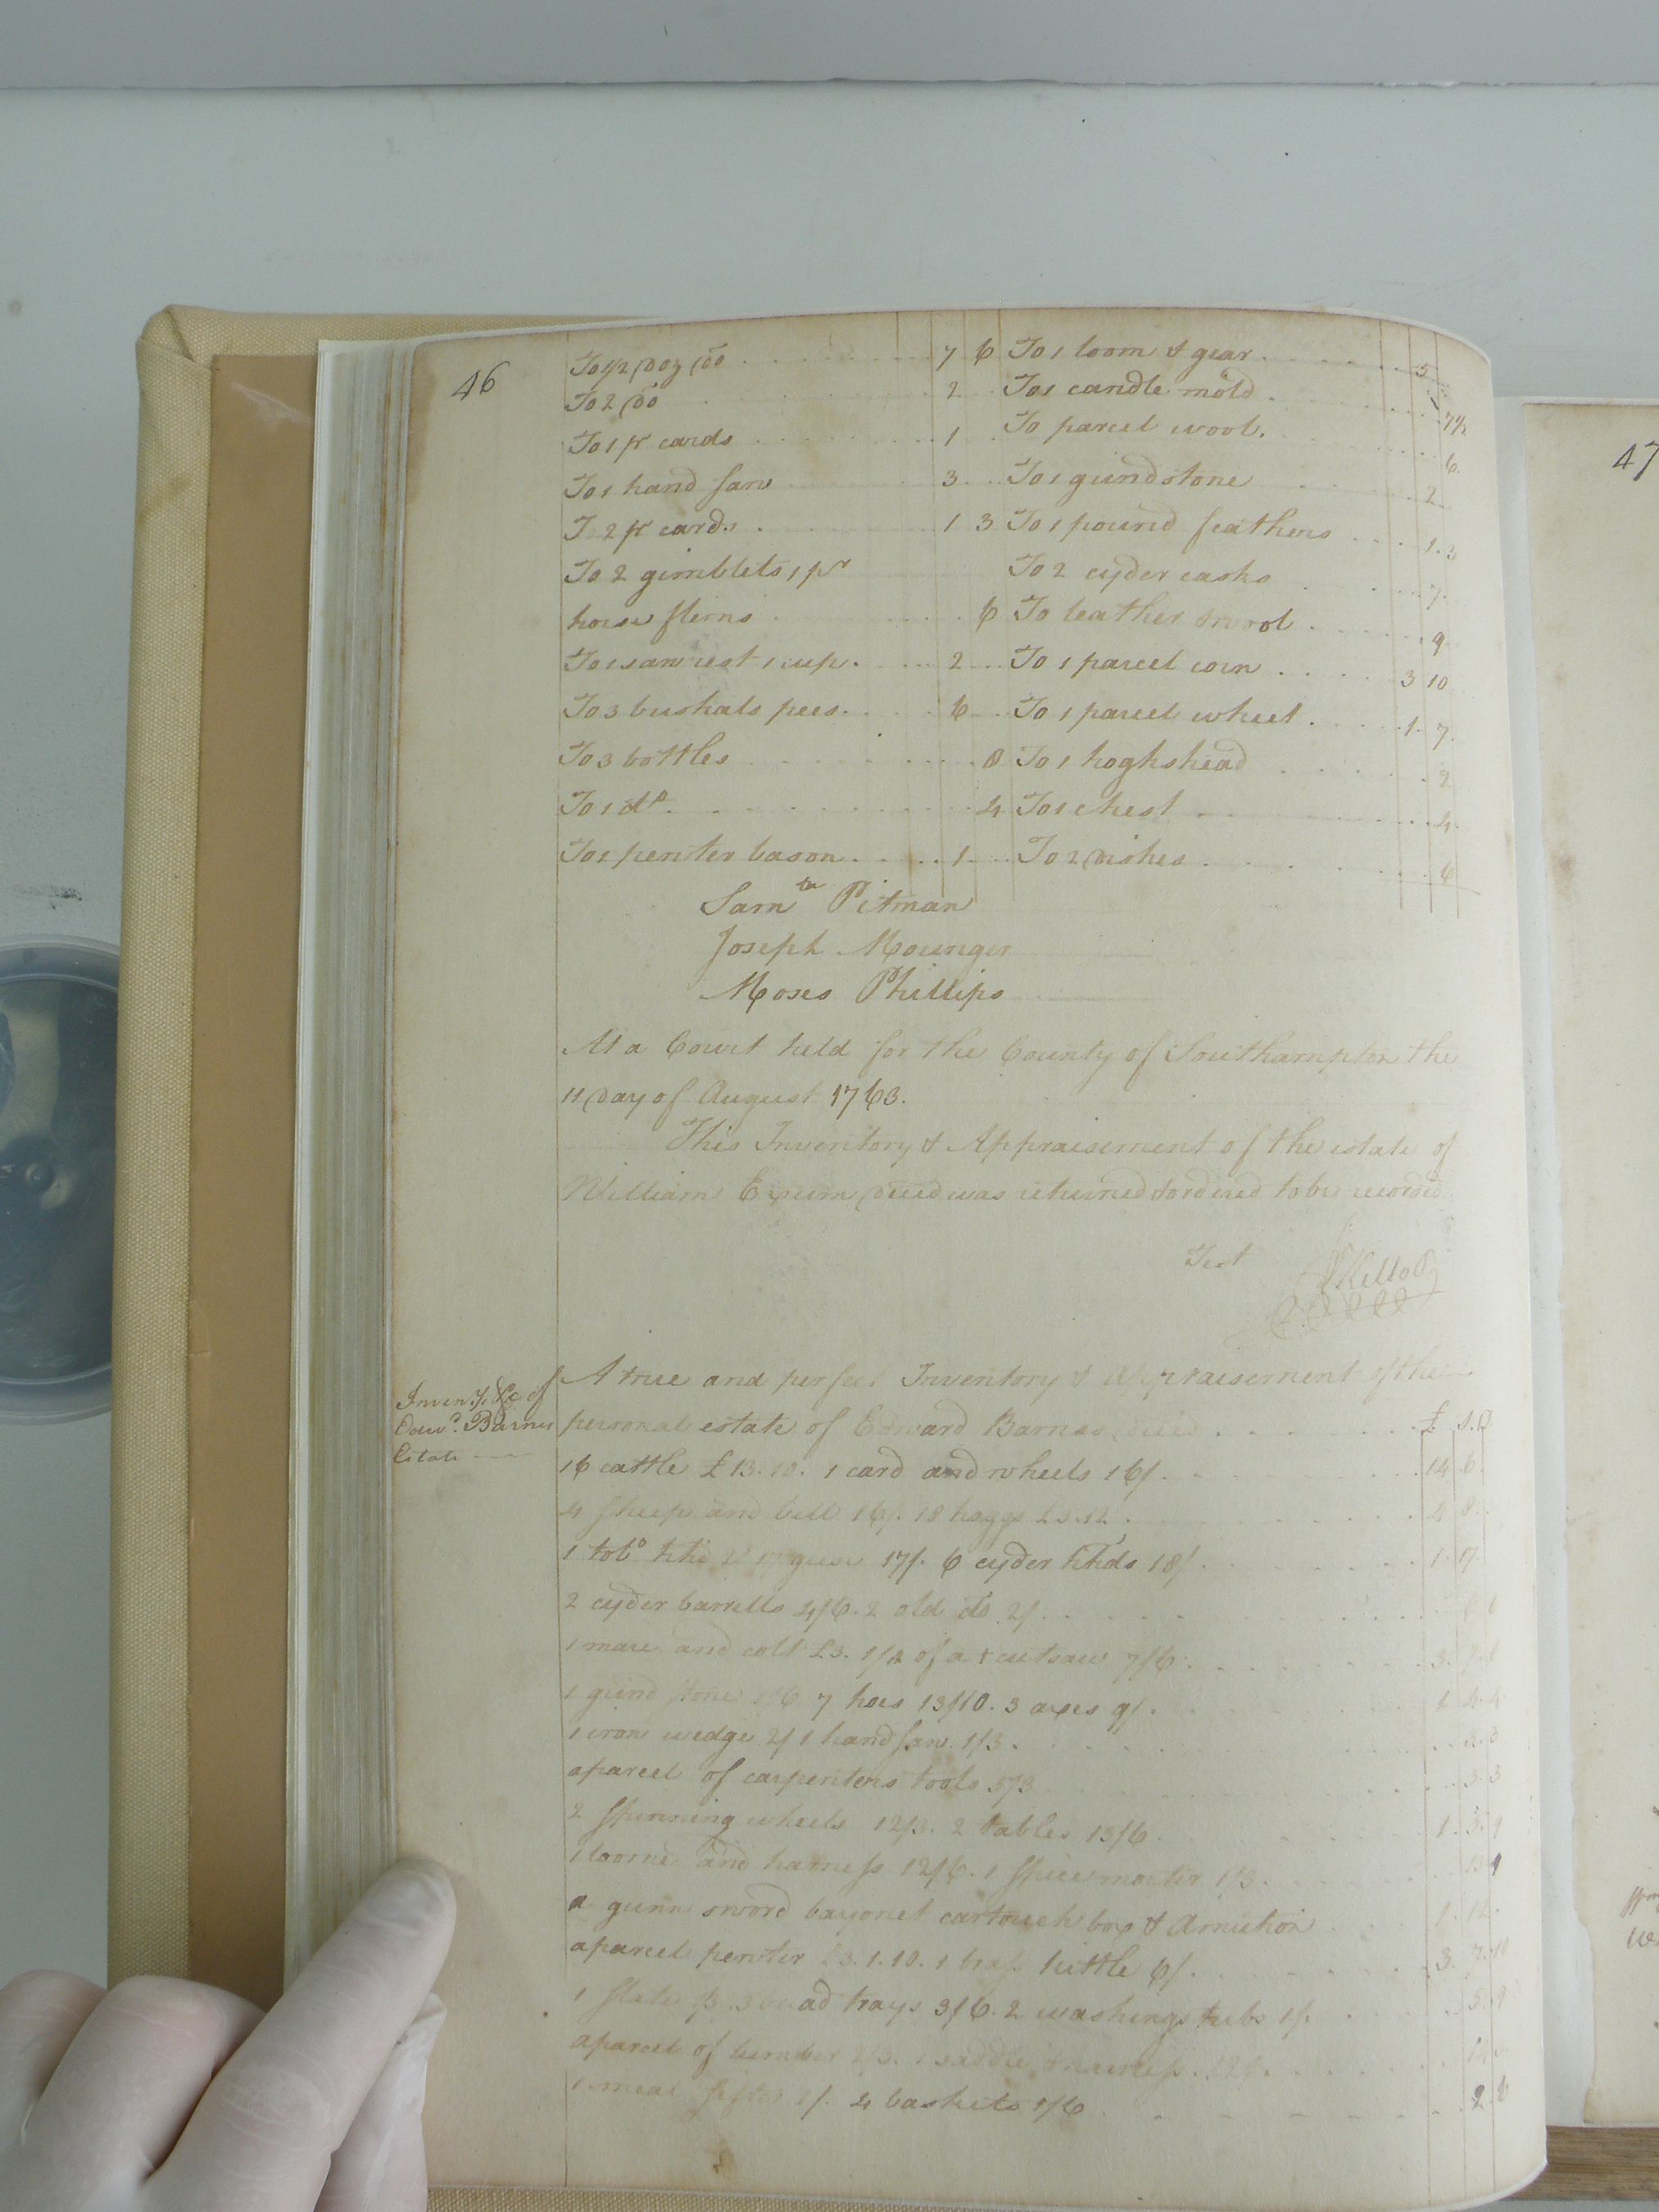 46
To 1/2 Doz Do . . . 7 6
To 2 Do . . . 2
To 1 pr cards . . . 1
To 1 hand saw . . . 3
To 2 pr cards . . . 1 3
To 2 gimblets 1 pr
horse flems . . . 6
To 1 saw rest 1 cup . . . 2
To 3 bushals pees . . . 6
To 3 bottles . . . 8
To 1 do . . . 4
To 1 pewter bason . . . 1
To 1 loom & gear . . . 5
To 1 candle mold . . . 7 1/2
To parcel wool . . . 6
To 1 grindstone . . . 2
To 1 pound feathers . . . 1. 3
To 2 cyder casks . . . 7
To leather & wool . . . 9
To 1 parcel corn . . . 3 10
To 1 parcel wheet . . . 1. 7
To 1 hoghshead . . . 2
To 1 chest . . . 4
To 2 dishes . . . 6
Saml Pitman
Joseph Mounger
Moses Phillips
At a Court held for the County of Southampton the
11 Day of August 1763.
This Inventory & Appraisement of the estate of
William Exum deced was returned & ordered to be recorded
Test
RKello
Inven.y. &c of
Edwd. Barnes
Estate
A true and perfect Inventory & appraisement of the
personal estate of Edward Barnes deced . . . £. s. d
16 cattle £13.10. 1 card and wheels 16/. . . . 14 6
4 sheep and bell 16/. 18 hoggs £3.12. . . . 4 8
1 tobo hhd 17 geese 17/. 6 cyder hhds 18/. . . . 1. 17
2 cyder barrells 4/6. 2 old do 2/. . . . 6 6
1 mare and colt £3. 1/2 of a + cutsaw 7/6. . . . 3. 7. 6
1 grind stone 1/6 7 hoes 13/10. 3 axes 9/. . . . 1. 4. 4
1 iron wedge 2/ 1 hand saw 1/3. . . . 3. 3
a parcel of carpenters tools 5/3 . . . 5. 3
2 spinning wheels 12/3. 2 tables 13/6. . . . 1. 5. 9
1 loome and harness 12/6. 1 spice morter 1/3. . . . 13 9
a gunn sword bayonet cartouch box & Amution . . . 1. 12.
a parcel pewter £3.1.10. 1 brass kittle 6/. . . . 3. 7. 10
1 slate 3 bread trays 3/6. 2 washings tubs 1/. . . . 5. 9
a parcel of lumber 2/3. 1 saddle & harness 12/. . . . 14
1 meal sifter 1/. 4 baskets 1/6 . . . 2. 6
47